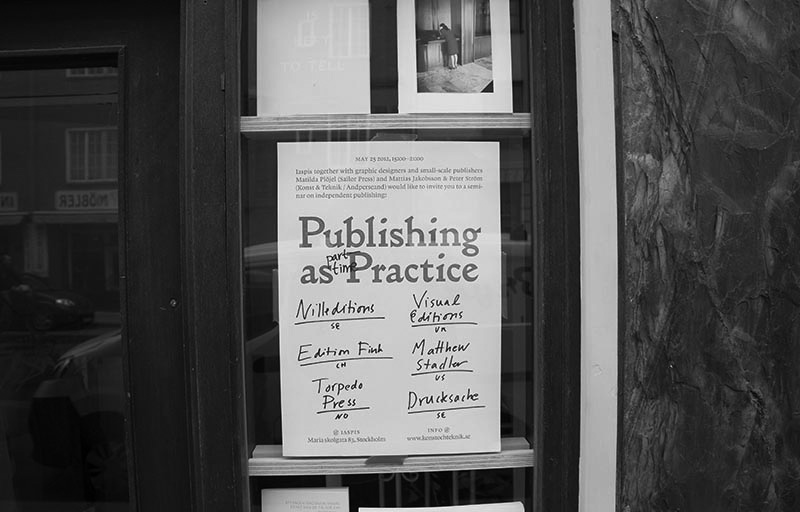 TO TELL
MAY 25 2012, 15:00–21:00
Iaspis together with graphic designers and small-scale publishers
Matilda Plöjel (Sailor Press) and Mattias Jakobsson & Peter Ström
(Konst & Teknik / Andperseand) would like to invite you to a semi-
nar on independent publishing:
Publishing
part
time
as Practice
Nilleditions
SE
Visual
Editions
UK
Edition Fink
CH
Matthew
Stadler
US
Torpedo
Press
NO
Drucksache
SE
@ IASPIS
Maria skolgata 83, Stockholm
INFO @
www.konstochteknik.se
MÖBLER